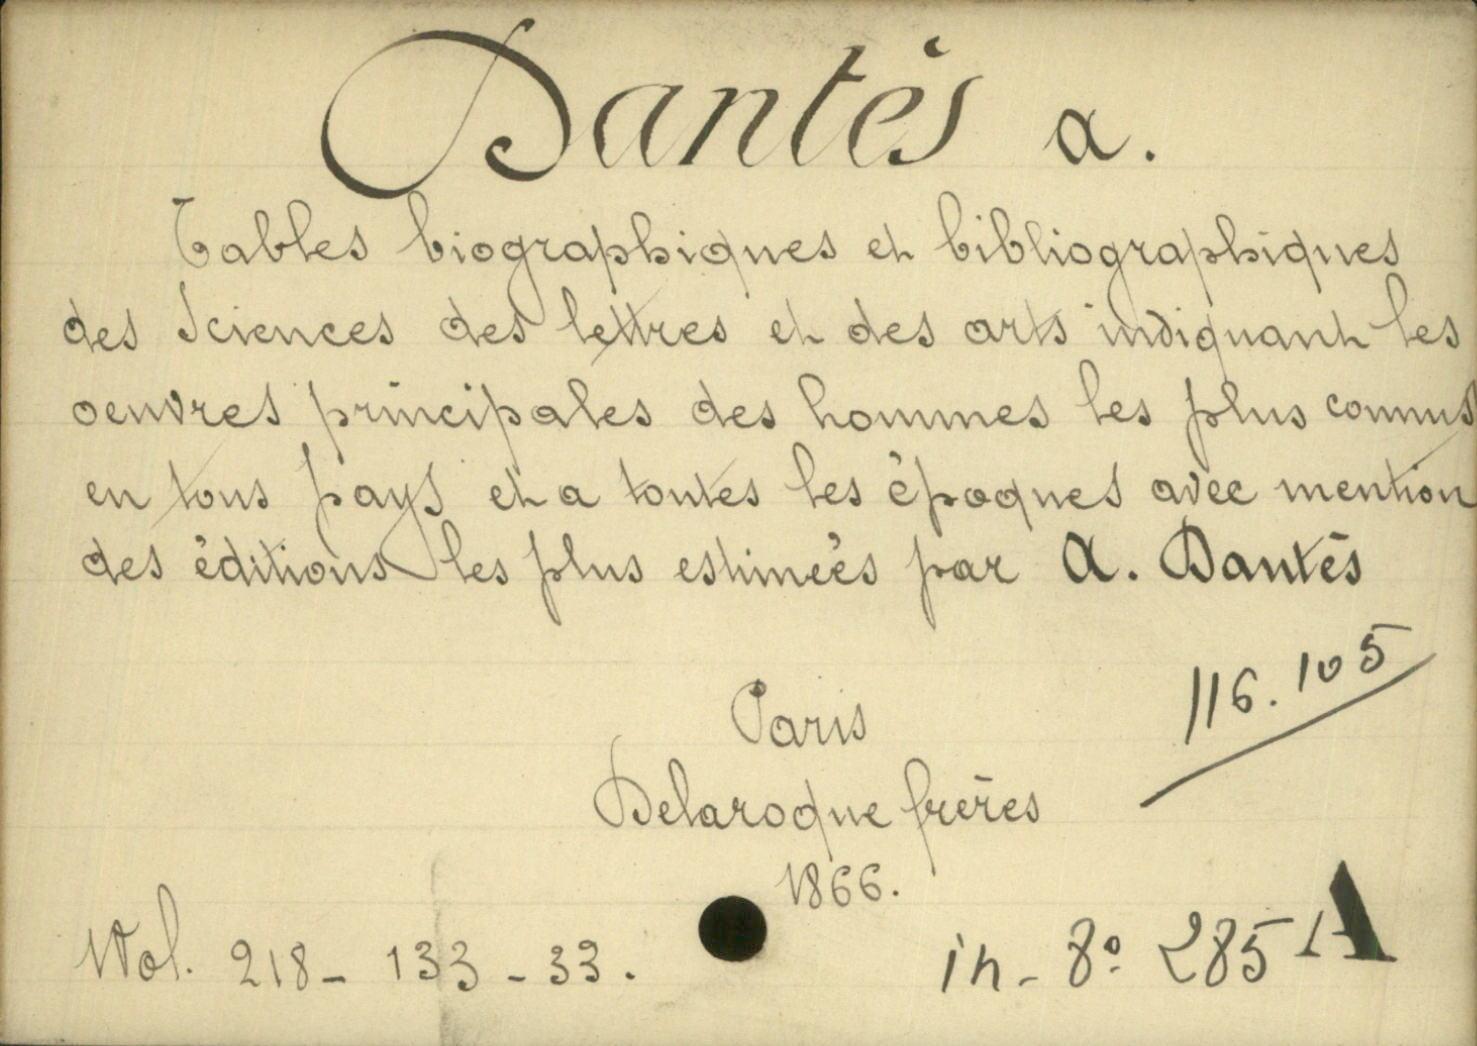 Dantès a.
Tables biographiques et bibliographiques
des Sciences des lettres et des arts indiquant les
oeuvres principales des hommes les plus connus
en tous pays et a toutes les èpoques avec mention
des èditions les plus estimèès par A. Dantès
116.105
Paris
Delaroque frères
1866.
Vol. 218 - 133 - 33.
in-8º 285 A